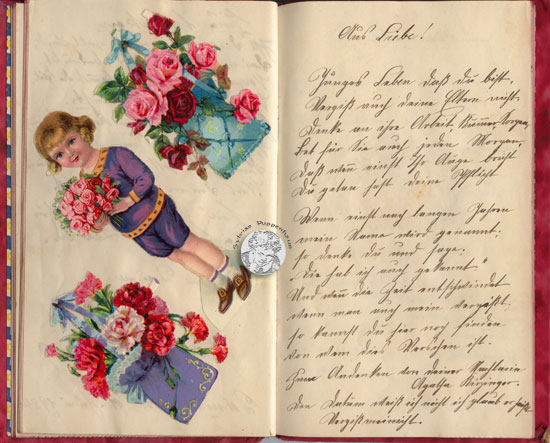 Aus Liebe!
Junges Leben daß du bist,
Vergiß auch deine Eltern nicht.
Denke an ihre Arbeit, Kummer, Sorgen,
Bet für Sie auch jeden Morgen,
Daß wenn einst ihr Auge bricht
Du getan hast deine Pflicht.
Wenn einst nach langen Jahren
mein Name wird genannt,
so denke du und sage:
"Die hab ich auch gekannt"
Und wenn die Zeit entschwindet
wenn man auch mein vergißt,
so kannst du hier noch finden
von wem dies Verschen ist.
Zum Andenken von deiner
Agatha
Den Datum weiß ich nicht ich glaub er heißt
Vergißmeinnicht.
Puppenhaus